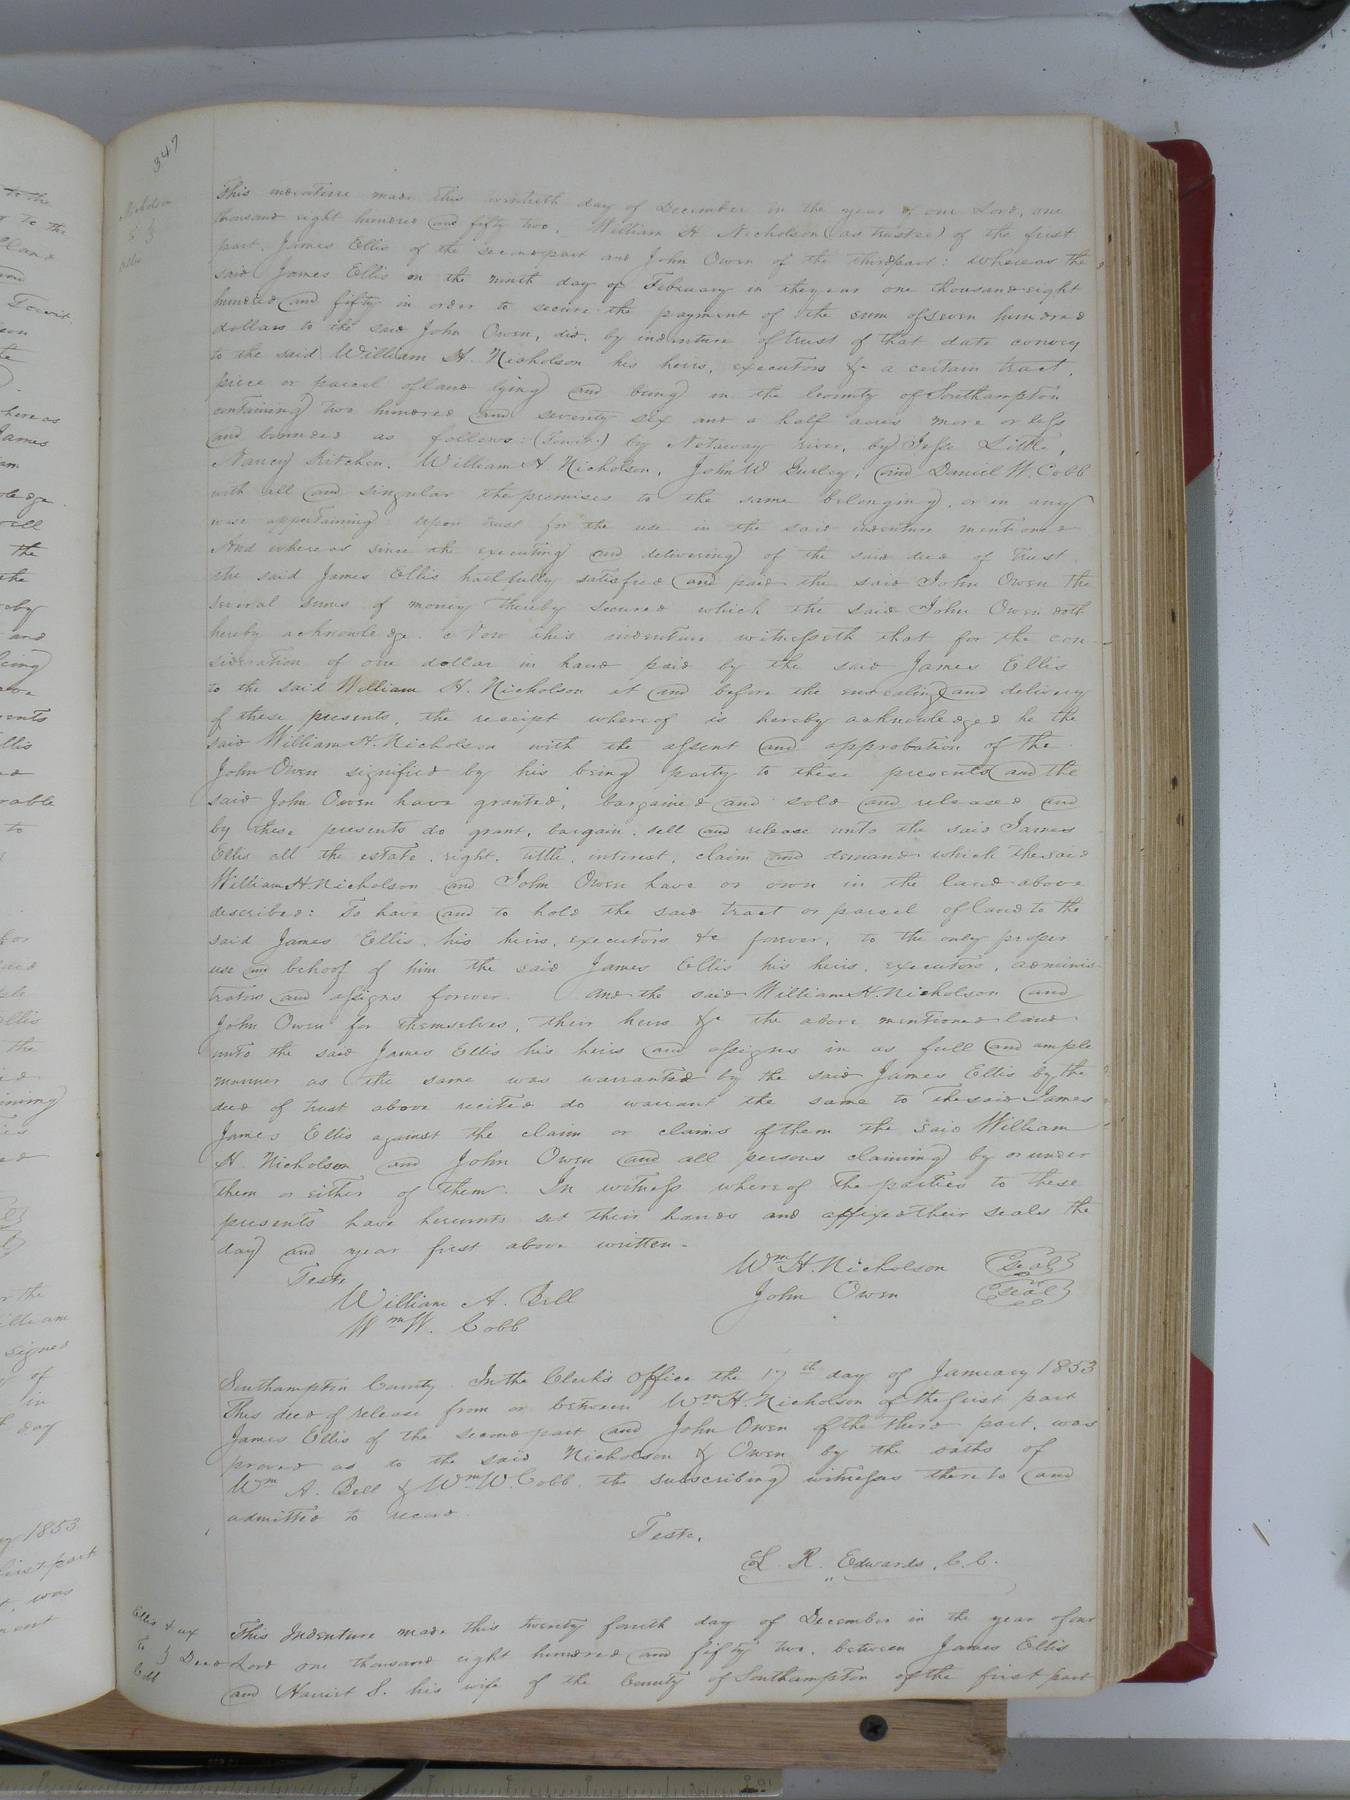 347
Nicholson
to }
Ellis
This indenture made this twentieth day of December in the year of our Lord, one
thousand eight hundred and fifty two, William H Nicholson (as trustee) of the first
part, James Ellis of the second part and John Owen of the third part: whereas the
said James Ellis on the ninth day of February in the year one thousand eight
hundred and fifty in order to secure the payment of the sum of seven hundred
dollars to the said John Owen, did, by indenture of trust of that date convey
to the said William H. Nicholson his heirs, executors &c a certain tract,
piece or parcel of land lying and being in the County of Southampton
containing two hundred and seventy six and a half acres more or less
and bounded as follows: (Towit.) by Notaway river, by Jesse Little,
Nancy Kitchen, William H Nicholson, John W Gurley, and Daniel W. Cobb
with all and singular the premises to the same belonging, or in any
wise appertaining upon trust for the use in the said indenture mentioned
And whereas since the executing and delivering of the said deed of Trust
the said James Ellis hath fully satisfied and paid the said John Owen the
several sums of money thereby secured which the said John Owen doth
hereby acknowledge. Now this indenture witnesseth that for the con-
sideration of one dollar in hand paid by the said James Ellis
to the said William H. Nicholson at and before the ensealing and delivery
of these presents, the receipt whereof is hereby acknowledged he the
said William H. Nicholson with the assent and approbation of the
John Owen signified by his being party to these presents and the
said John Owen have granted, bargained and sold and released and
by these presents do grant, bargain, sell and release unto the said James
Ellis all the estate, right, tittle, interest, claim and demand which the said
William H Nicholson and John Owen have or own in the land above
described: To have and to hold the said tract or parcel of land to the
said James Ellis, his heirs, executors &c forever, to the only proper
use and behoof of him the said James Ellis his heirs, executors, adminis-
trators and assigns forever. And the said William H. Nicholson and
John Owen for themselves, their heirs &c the above mentioned land
unto the said James Ellis his heirs and assigns in as full and ample
manner as the same was warranted by the said James Ellis by the
deed of trust above recited do warrant the same to the said James
James Ellis against the claim or claims of them the said William
H. Nicholson and John Owen and all persons claiming by or under
them or either of them. In witness whereof the parties to these
presents have hereunto set their hands and affixed their seals the
day and year first above written -
Teste Wm H. Nicholson (seal)
William A. Bell John Owen (seal)
Wm W. Cobb
Southampton County. In the Clerk's Office the 17th day of January 1853
This deed of release from or between Wm H. Nicholson of the first part
James Ellis of the second part and John Owen of the third part, was
proved as to the said Nicholson & Owen by the oaths of
Wm A. Bell & Wm W. Cobb, the subscribing witnesses thereto and
admitted to record.
Teste,
L. R. Edwards, C. C.
Ellis & ux
to } Deed
Bell
This Indenture made this twenty fourth day of December in the year of our
Lord one thousand eight hundred and fifty two, between James Ellis
and Harriet S. his wife of the County of Southampton of the first part